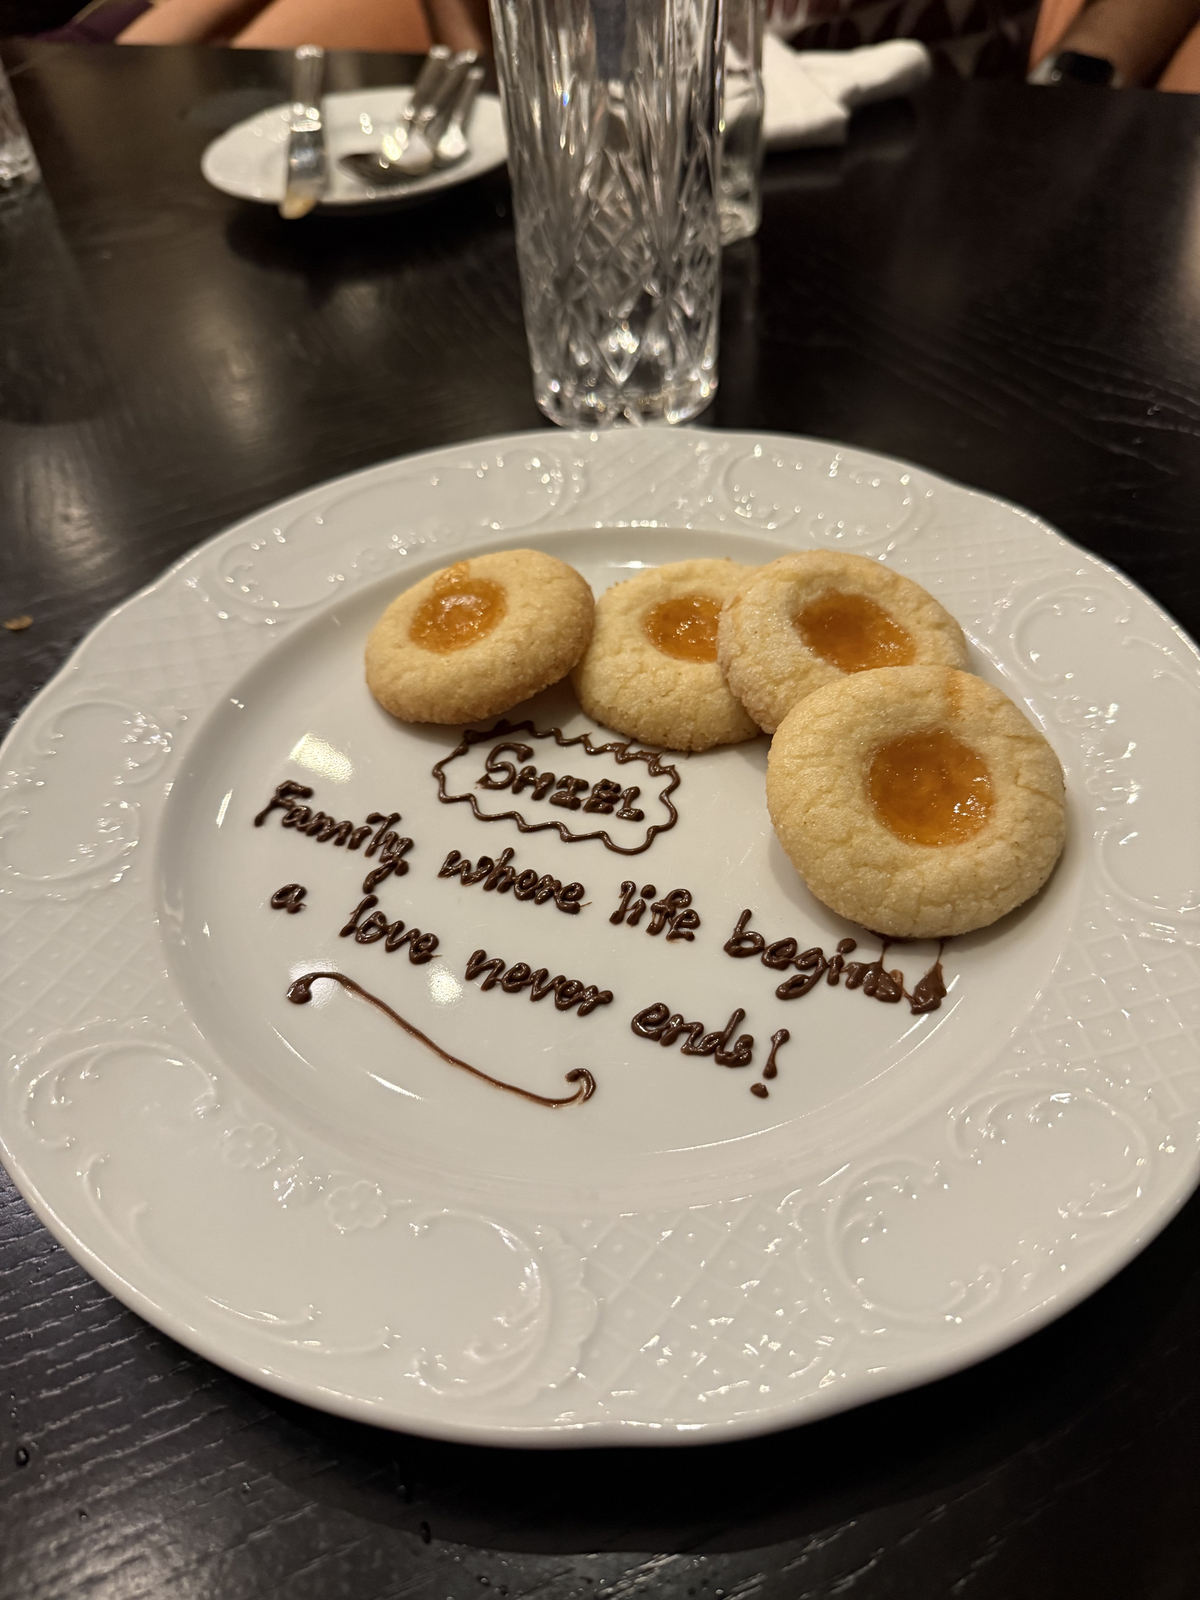 SHIEL
Family where life begins!
a love never ends!